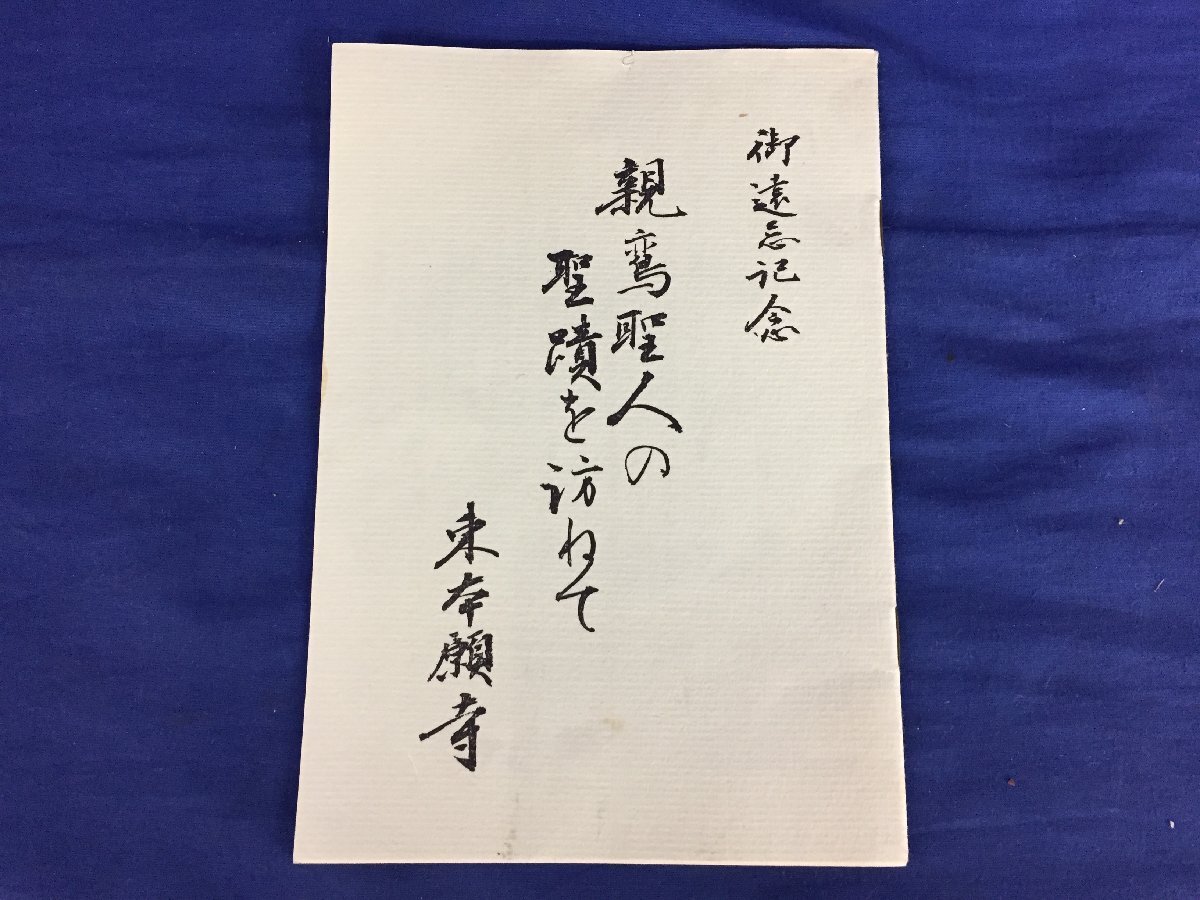 御遠忌記念
親鸞聖人の
聖蹟を訪ねて
東本願寺